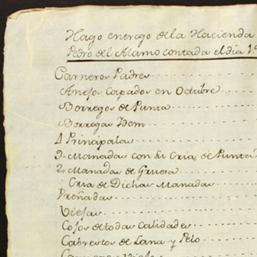 Hago entrego de la Hacienda
Pedro del Alamo contada el dia 1
Carneros Padres
Añejos capados en Octubre
Borregos de Punta
Borregas Idem
1 Principalas
3. Manadas con su Cria de Punta
2. Manadas de Gruesa
Cria de Dichas Manadas
Preñadas
Viejas
Cojos de todas calidades
Cabrestos de Lana y Pelo